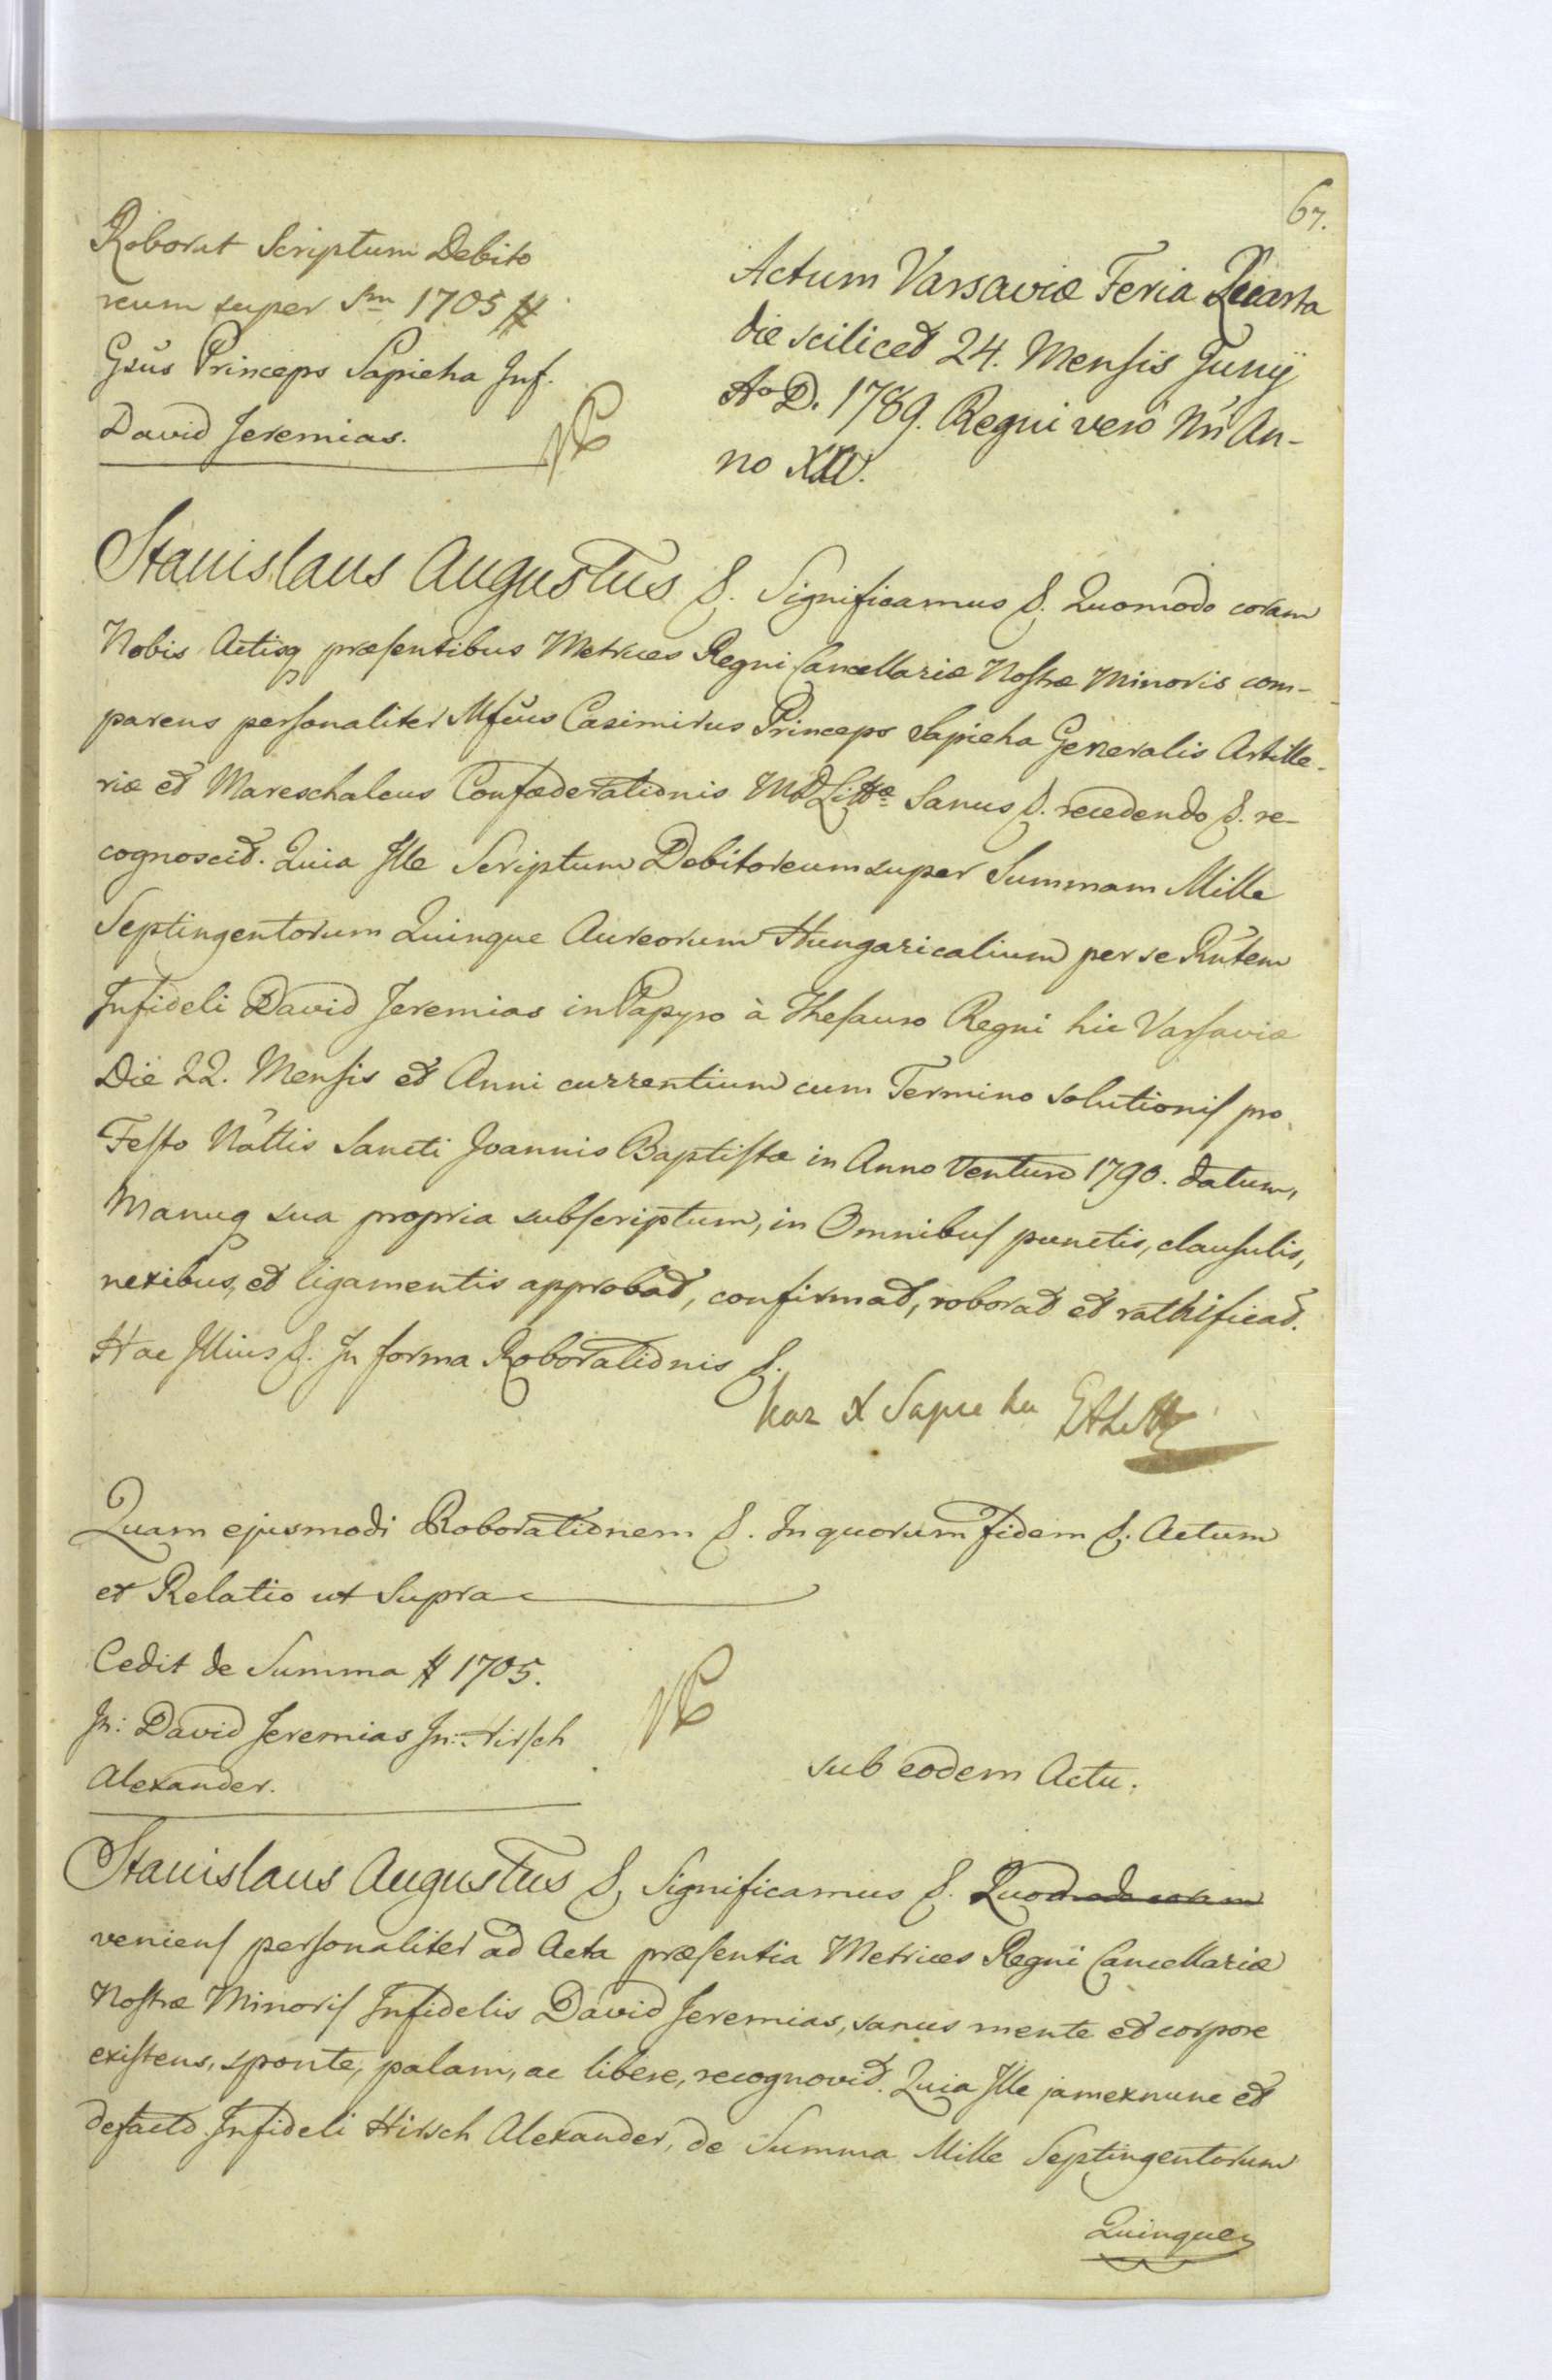 67.
Roborat Scriptum Debito
reum super Sm 1705 #
Gsus Princeps Sapieha Inf.
David Jeremias.
Actum Varsaviæ Feria Quarta
die scilicet 24. Mensis Junÿ
Ao D. 1789. Regni vero Nri An-
no XXV.
Stanislaus Augustus &. Significamus &. Quomodo coram
Nobis Actisq præsentibus Metrices Regni Cancellariæ Nostræ Minoris com-
parens personaliter Mfcus Casimirus Princeps Sapieha Generalis Artille-
riæ et Mareschalcus Confæderationis MD Littæ Sanus &. recedendo &. re-
cognoscit. Quia Ille Scriptum Debitoreum super Summam Mille
Septingentorum Quinque Aureorum Hungaricalium per se Rntem
Infideli David Jeremias in Papyro à Thesauro Regni hic Varsaviæ
Die 22. Mensis et Anni currentium cum Termino Solutionis pro
Festo Nattis Sancti Joannis Baptistæ in Anno Venturo 1790. datum,
Manuq sua propria subscriptum, in Omnibus punctis, clausulis,
nexibus, et ligamentis approbat, confirmat, roborat et rathificat.
Hac Illius &. In forma Roborationis &.
Kaz X Sapieha
Quam ejusmodi Roborationem &. In quorum fidem &. Actum
et Relatio ut Supra
Cedit de Summa # 1705.
In: David Jeremias In: Hirsch
Alexander.
sub eodem Actu.
Stanislaus Augustus &, Significamus &. Quomodo coram
veniens personaliter ad Acta præsentia Metrices Regni Cancellariæ
Nostræ Minoris Infidelis David Jeremias, sanus mente et corpore
existens, sponte, palam, ac libere, recognovit. Quia Ille jam ex nunc et
defacto Infideli Hirsch Alexander, de Summa Mille Septingentorum
Quinque